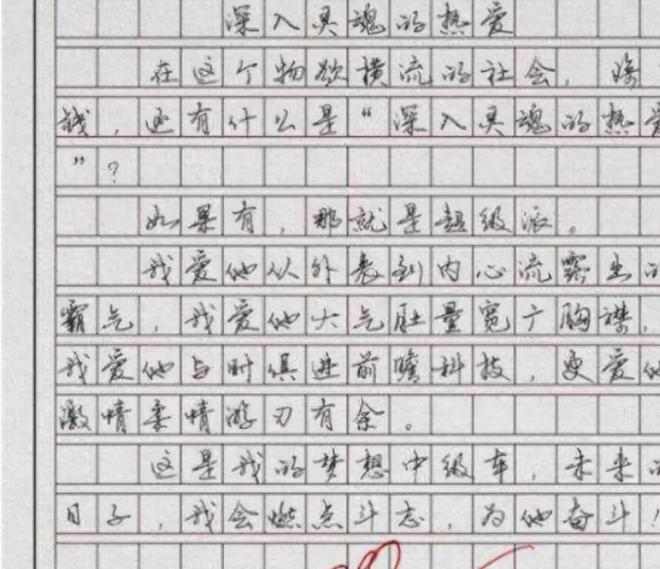 深入灵魂的热爱
在这个物欲横流的社会,除
钱,还有什么是“深入灵魂的热爱
”?
如果有,那就是超级派。
我爱他从外表到内心流露出的
霸气,我爱他大气肚量宽广胸襟,
我爱他与时俱进前瞻科技,更爱他
激情柔情游刃有余。
这是我的梦想中级车,未来的
日子,我会燃点斗志,为他奋斗!